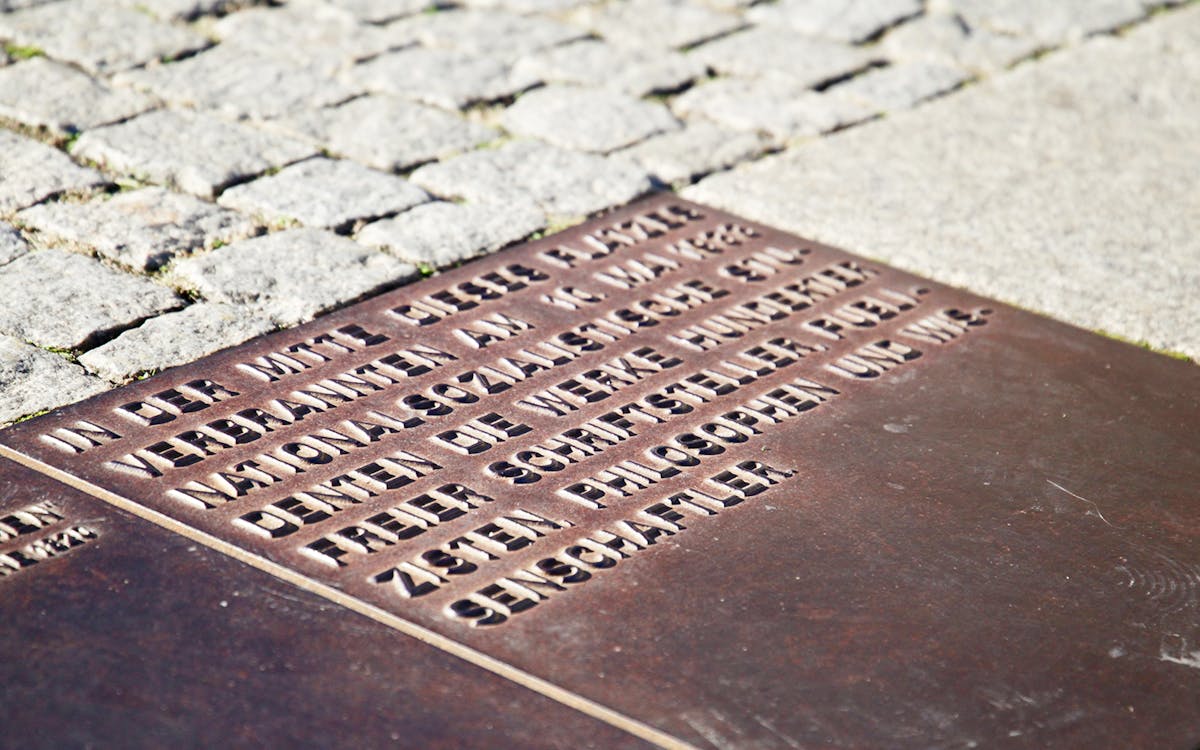 IN DER MITTE DIESES PLATZES
VERBRANNTEN AM 10. MAI 1933
NATIONALSOZIALISTISCHE STU-
DENTEN DIE WERKE HUNDERTER
FREIER SCHRIFTSTELLER, PUBLI-
ZISTEN, PHILOSOPHEN UND WIS-
SENSCHAFTLER.